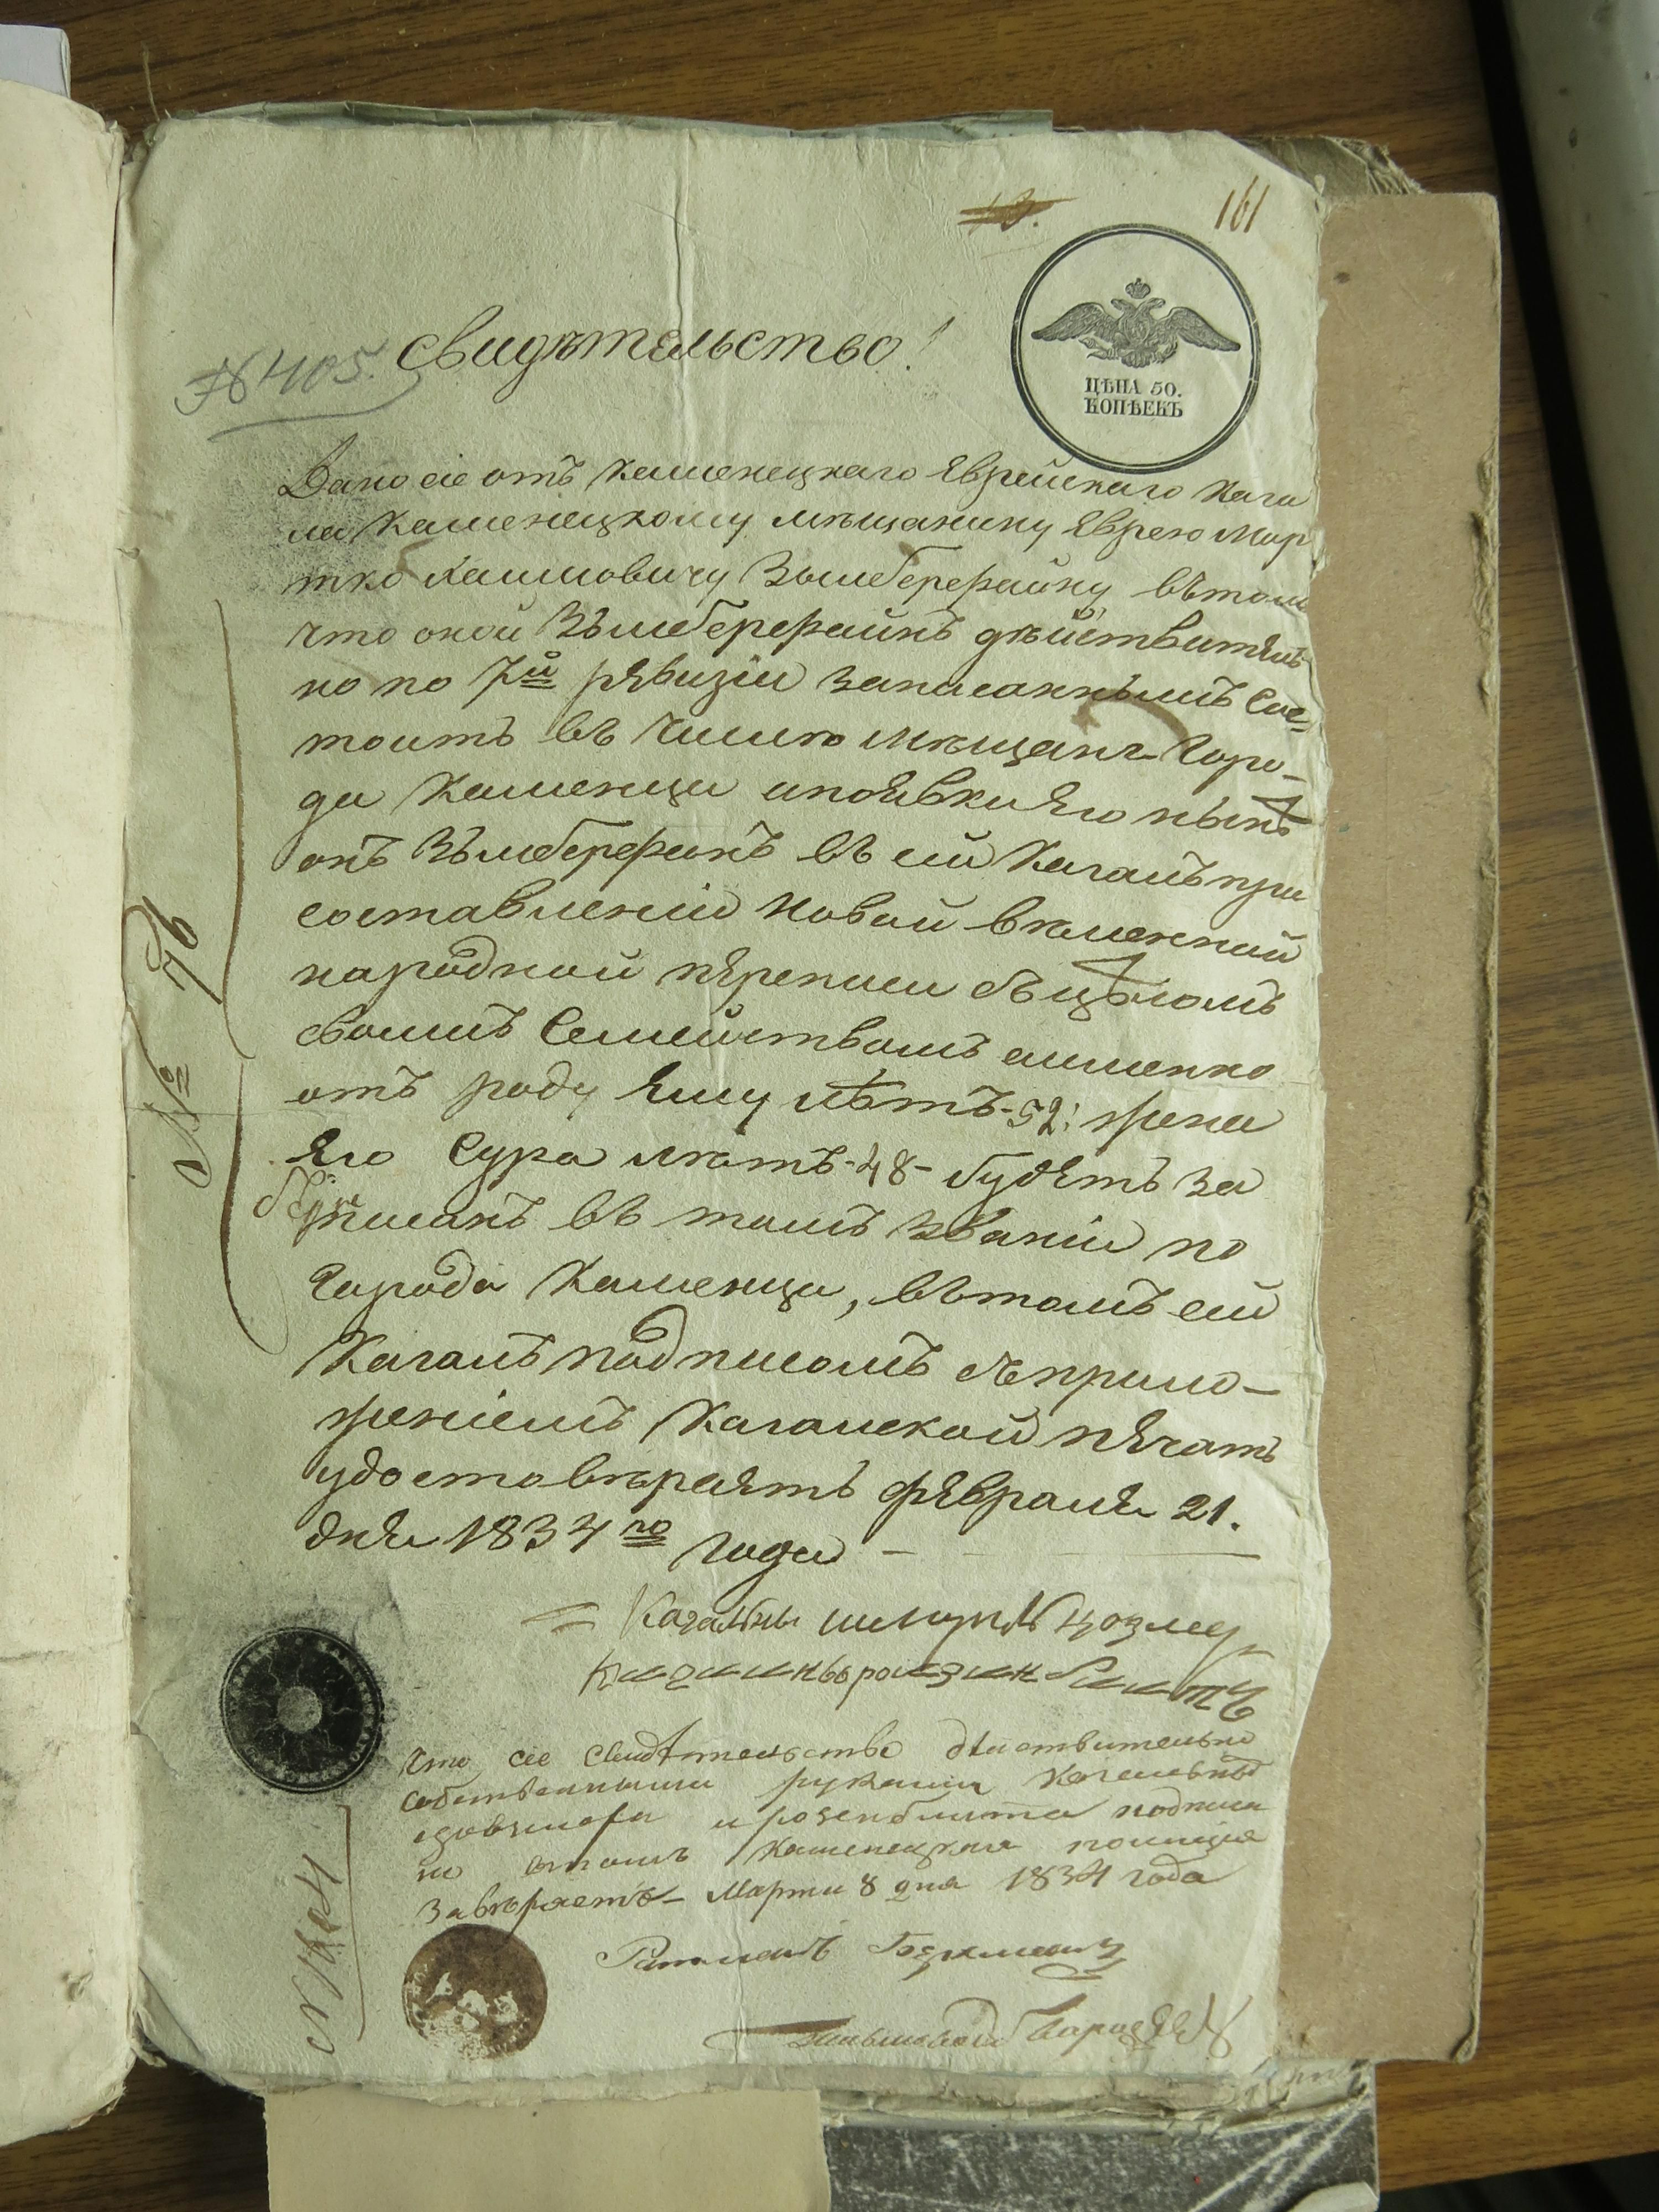 161
ЦѢНА 50.
КОПѢЕКЪ
№ 405.
Свидѣтельство!
Дано сіе отъ Каменецкаго Еврейскаго Кага
ла Каменецкому мѣщанину Еврею Мор
тко Хаимовичу Зильберфайну вътомъ
что оной Зъильберфейнъ дѣйствитель
но по 7й ревизіи записаннымъ Сос=
тоитъ въ числѣ мѣщанъ Горо-
да Каменца ипоявки Его нынѣ
онъ Зъильберфеинъ въ сій Кагалъ при
составленіи новой въкаменной
народной переписи съцѣломъ
своимъ Семействомъ аименно
отъ роду Ему лѣтъ-52: жена
Его Сура лѣтъ-48- будетъ за
писанъ въ томъ званіи по
Города Каменца, вътомъ сій
Кагалъ подписомъ съприло-
женіемъ Кагалской печать
удостовѣряетъ февраля 21.
дня 1834го Года
№ 76
Что сіе свидѣтельство дѣйствительно
собственными руками Кагальных
и розенблита подписа
но втомъ Каменецкая полиція
Завѣряетъ- Марта 8 дня 1834 года
Ратманъ